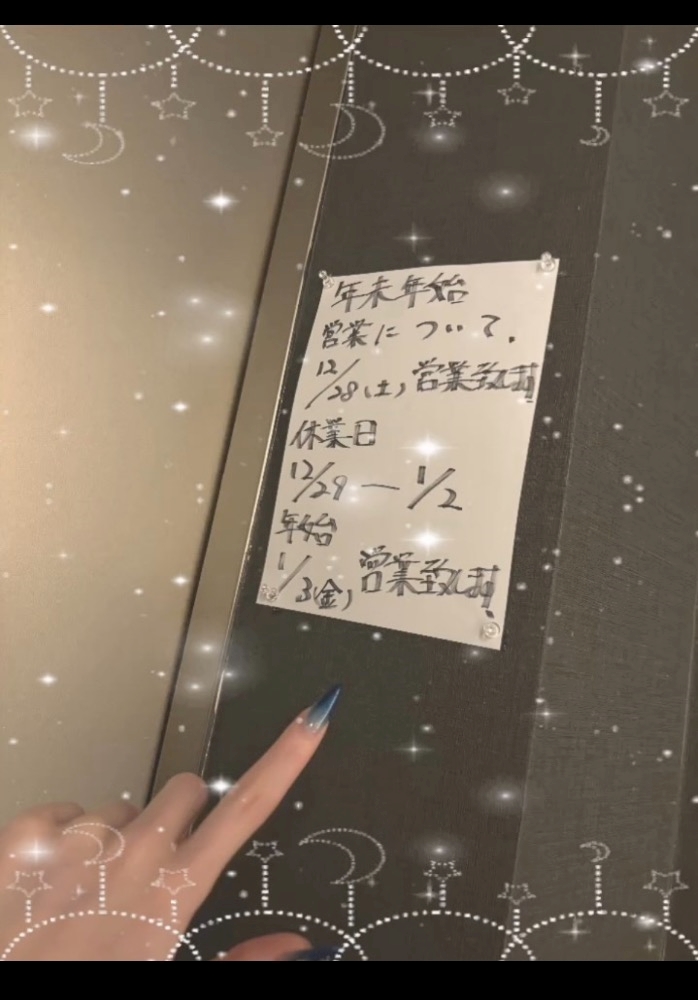 年末年始
営業について.
12/28(土) 営業致します!
休業日
12/29 ― 1/2
年始
1/3(金) 営業致します!